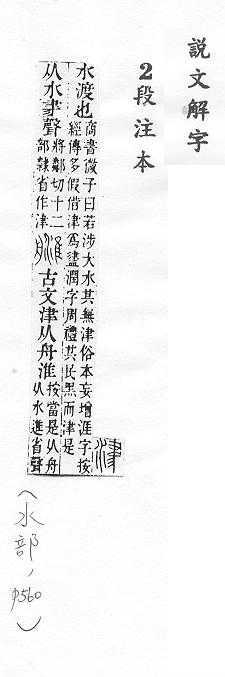 說文解字
2段注本
津
水渡也商書微子曰若涉大水其無津俗本妄增涯字按
經傳多假借津爲盡潤字周禮其民黑而津是
从水𦘔聲將鄰切十二
部隸省作津
古文津从舟淮按當是从舟
从水進省聲
(水部, p560)